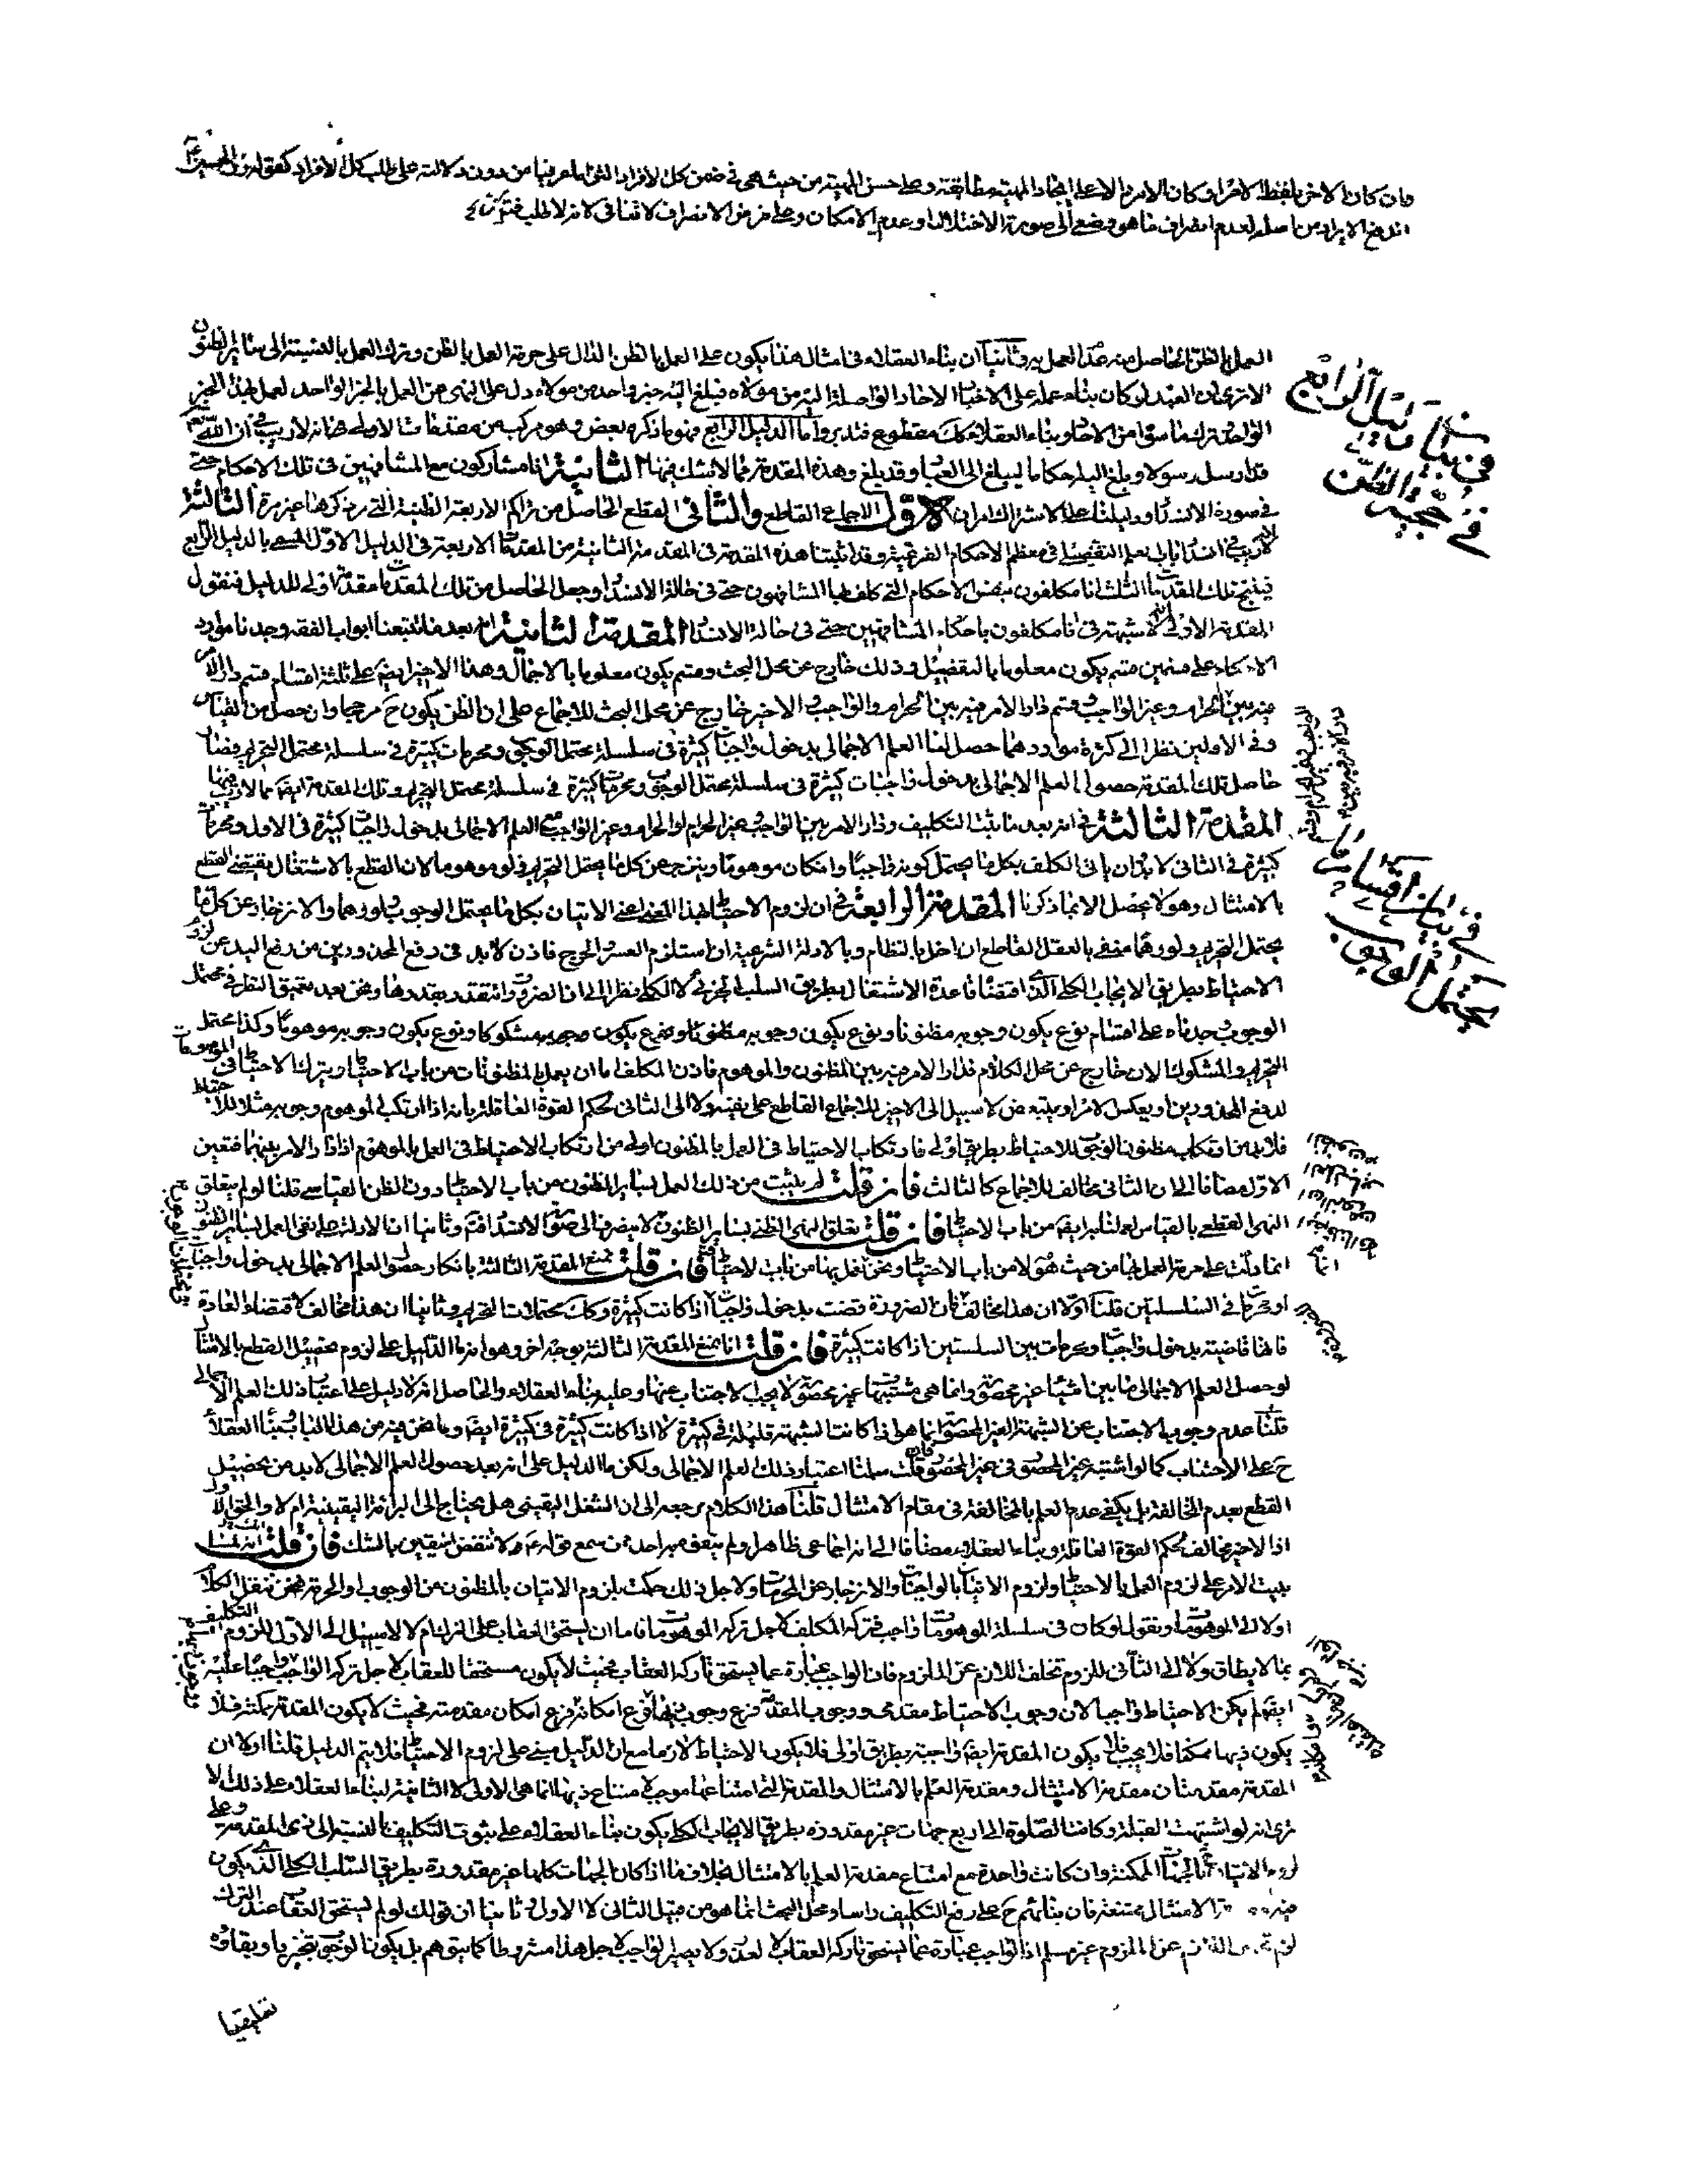 فان كان الاخر بلفظ الامر وكان الامر دالا على ايجاد المهية مطابقة وعلى حسن المهية من حيث هى فى ضمن كل الافراد من دون دلالته على طلب كل الافراد
اندفع الايراد من اصله لعدم انصراف ما هو وضع الى صورة الاختلال او عدم الامكان وعلى فرض الانصراف لا تنافى لانه لا طلب فتم
فى بيان دليل الرابع
فى حجية الظن
العمل بالظن الحاصل منه عدم العمل به وثانيا ان بناء العقلاء فى امثال هذا يكون على العمل بالظن الدال على حرمة العمل بالظن وترك العمل بالنسبة الى سائر الظنون
الا ترى ان العبد لو كان بناء عمله على الاخبار الاحاد الواصلة اليه من مولاه فبلغ اليه خبر واحد من مولاه دل على النهى عن العمل بالخبر الواحد لعمل بهذا الخبر
الواحد وترك ما سواه من الاحاد وبناء العقلاء مقطوع فتدبر واما الدليل الرابع فهو ما ذكره بعض وهو مركب من مقدمات الاولى انه لا ريب فى ان الله
قد ارسل رسولا وبلغ اليه احكاما ليبلغ الى العباد وقد بلغ وهذه المقدمة مما لا شك فيها الثانية انا مشاركون مع المشافهين فى تلك الاحكام حتى
فى صورة الانسداد ودليلنا على الاشتراك امران الاول الاجماع القاطع والثانى القطع الحاصل من تراكم الاربعة الظنية التى مر ذكرها غير مرة الثالثة
لا ريب فى انسداد باب العلم التفصيلى فى معظم الاحكام الفرعية وقد اثبتنا هذه المقدمة فى المقدمة الثانية من المقدمات الاربعة فى الدليل الاول المسمى بالدليل الرابع
فينتج تلك المقدمات الثلث انا مكلفون ببعض الاحكام التى كلف بها المشافهون حتى فى حالة الانسداد وجعل الحاصل من تلك المقدمات مقدمة اولى للدليل فنقول
المقدمة الاولى لا شبهة فى انا مكلفون باحكام المشافهين حتى فى حالة الانسداد المقدمة الثانية انه بعد ما تتبعنا ابواب الفقه وجدنا موارد
الاحكام على قسمين قسم يكون معلوما بالتفصيل وذلك خارج عن محل البحث وقسم يكون معلوما بالاجمال وهذا الاخير ايضا على ثلثة اقسام قسم دار الامر
فيه بين الحرام وغير الواجب وقسم دار الامر فيه بين الحرام والواجب والاخير خارج عن محل البحث للاجماع على ان الظن يكون ح مرجحا وان حصل من القياس
وفى الاولين نظرا الى كثرة مواردهما حصل لنا العلم الاجمالى بدخول واجبات كثيرة فى سلسلة محتمل الوجوب ومحرمات كثيرة فى سلسلة محتمل التحريم فصار
حاصل تلك المقدمة حصول العلم الاجمالى بدخول واجبات كثيرة فى سلسلة محتمل الوجوب ومحرمات كثيرة فى سلسلة محتمل التحريم وتلك المقدمة ايضا مما لا ريب فيها
المقدمة الثالثة فى انه بعد ما ثبت التكليف ودار الامر بين الواجب وغير الحرام او الحرام وغير الواجب مع العلم الاجمالى بدخول واجبات كثيرة فى الاول ومحرمات
كثيرة فى الثانى لا بد ان ياتى المكلف بكل ما يحتمل كونه واجبا وان كان موهوما وينزجر عن كل ما يحتمل التحريم ولو موهوما لان القطع بالاشتغال يقتضى القطع
بالامتثال وهو لا يحصل الا بما ذكرنا المقدمة الرابعة فى ان لزوم الاحتياط بهذا المعنى اعنى الاتيان بكل ما يحتمل الوجوب ولو وهما والانزجار عن كل ما
فى بيان اقسام ما يحتمل الوجوب
يحتمل التحريم ولو وهما منفى بالعقل القاطع ان اخل بالنظام وبالادلة الشرعية ان استلزم العسر والحرج فاذن لا بد فى دفع المحذورين من رفع اليد عن لزوم
الاحتياط بطريق الايجاب الكلى الذى اقتضاه قاعدة الاشتغال بطريق السلب الجزئى لا الكلى نظرا الى ان الضرورة تتقدر بقدرها ونحن بعد تعميق النظر فى محتمل
الوجوب وجدناه على اقسام نوع يكون وجوبه مظنونا ونوع يكون وجوبه مشكوكا ونوع يكون وجوبه موهوما وكذا محتمل
التحريم والمشكوك الان خارج عن محل الكلام فدار الامر فيه بين المظنون والموهوم فاذن المكلف اما ان يعمل بالمظنونات من باب الاحتياط ويترك الاحتياط فى الموهومات
لدفع المحذورين او يعكس الامر او يتبعض لا سبيل الى الاخير للاجماع القاطع على نفيه ولا الى الثانى لحكم القوة العاقلة بانه اذا ارتكب الموهوم وجوبه مثلا للاحتياط
فلا بد من ارتكاب مظنون الوجوب للاحتياط بطريق اولى فارتكاب الاحتياط فى العمل بالمظنون اولى من ارتكاب الاحتياط فى العمل بالموهوم اذا دار الامر بينهما فتعين
الاول مضافا الى ان الثانى مخالف للاجماع كالثالث فان قلت لم يثبت من ذلك العمل بساير الظنون من باب الاحتياط دون الظن القياسى قلنا لو لم يتعلق
النهى القطعى بالقياس لعملنا به ايضا من باب الاحتياط فان قلت تعلق النهى الظنى بساير الظنون لا ينصرف الى صورة الانسداد وثانيا ان الادلة على نفى العمل بساير الظنون
انما دلت على حرمة العمل بها من حيث هو لا من باب الاحتياط ونحن نعمل بها من باب الاحتياط فان قلت نمنع المقدمة الثالثة بانكار حصول العلم الاجمالى بدخول واجبات
او محرمات فى السلسلتين قلنا اولا ان هذا مخالف فان الضرورة قضت بدخول واجبات اذا كانت كثيرة وكك محتملات التحريم وثانيا ان هذا مخالف لاقتضاء العادة
فانها قاضية بدخول واجبات ومحرمات بين السلسلتين اذا كانت كثيرة فان قلت انا نمنع المقدمة الثالثة بوجه اخر وهو انه ما الدليل على لزوم تحصيل القطع بالامتثال
لو حصل العلم الاجمالى ما بين اشياء غير محصورة وانما هى مشتبهة غير محصورة لا يجب الاجتناب عنها وعليه بناء العقلاء والحاصل انه لا دليل على اعتبار ذلك العلم الاجمالى
قلنا عدم وجوب الاجتناب عن الشبهة الغير المحصورة انما هو اذا كانت الشبهة قليلة فى كثيرة لا اذا كانت كثيرة فى كثيرة ايضا وما نحن فيه من هذا الباب بناء العقلاء
ح على الاجتناب كما لو اشتبه غير المحصور فى غير المحصور فان قلت سلمنا اعتبار ذلك العلم الاجمالى ولكن ما الدليل على انه بعد حصول العلم الاجمالى لا بد من تحصيل
القطع بعدم المخالفة بل يكفى عدم العلم بالمخالفة فى مقام الامتثال قلنا هذا الكلام مرجعه الى ان الشغل اليقينى هل يحتاج الى البراءة اليقينية ام لا والحق الاول
اذ الاخير مخالف لحكم القوة العاقلة وبناء العقلاء مضافا الى انه اجماعى ظاهرا ولم يتفوه به احد ممن سمع قوله ع ولا تنقض اليقين بالشك فان قلت
الامر على لزوم العمل بالاحتياط ولزوم الاتيان بالواجبات والانزجار عن المحرمات ولاجل ذلك حكمت بلزوم الاتيان بالمظنون من الوجوب او الحرمة فنحن ننقل الكلام
اولا الى الموهومات ونقول لو كان فى سلسلة الموهومات واجب فتركه المكلف لاجل تركه الموهومات فاما ان يستحق العقاب على الترك ام لا لا سبيل الى الاول للزوم التكليف
بما لا يطاق ولا الى الثانى للزوم تخلف اللازم عن الملزوم فان الواجب عبارة عما يستحق تاركه العقاب فحيث لا يكون مستحقا للعقاب لاجل تركه الواجب
ايضا لم يكن الاحتياط واجبا لان وجوب الاحتياط مقدمى ووجوب المقدمة فرع وجوب ذيها فرع امكانه فرع امكان مقدمته فحيث لا يكون المقدمة ممكنة فلا
يكون ذيها ممكنا فلا يجب فلا يكون المقدمة ايضا واجبة بطريق اولى فلا يكون الاحتياط لازما مع ان الدليل مبنى على لزوم الاحتياط فلا يتم الدليل قلنا اولا ان
المقدمة مقدمتان مقدمة الامتثال ومقدمة العلم بالامتثال والمقدمة التى امتناعها موجب لامتناع ذيها انما هى الاولى لا الثانية لبناء العقلاء على ذلك الا
ترى انه لو اشتبهت القبلة وكانت الصلوة الى اربع جهات غير مقدورة بطريق الايجاب الكلى يكون بناء العقلاء على ثبوت التكليف بالنسبة الى ذى المقدمة وعلى
لزوم الاتيان بالجهات الممكنة وان كانت واحدة مع امتناع مقدمة العلم بالامتثال بخلاف ما اذا كان الجهات كلها غير مقدورة بطريق السلب الكلى الذى يكون
الامتثال ممتنعة فان بنائهم ح على رفع التكليف راسا ومحل البحث انما هو من قبيل الثانى لا الاول وثانيا ان قولك لو لم يستحق العقاب عند الترك
اللازم عن الملزوم غير مسلم اذ الواجب عبارة عما يستحق تاركه العقاب لا لعذر ولا يصير الواجب لاجل هذا مشروطا كما يتوهم بل يكون الوجوب تنجيزيا وبقاؤه
تعليقيا